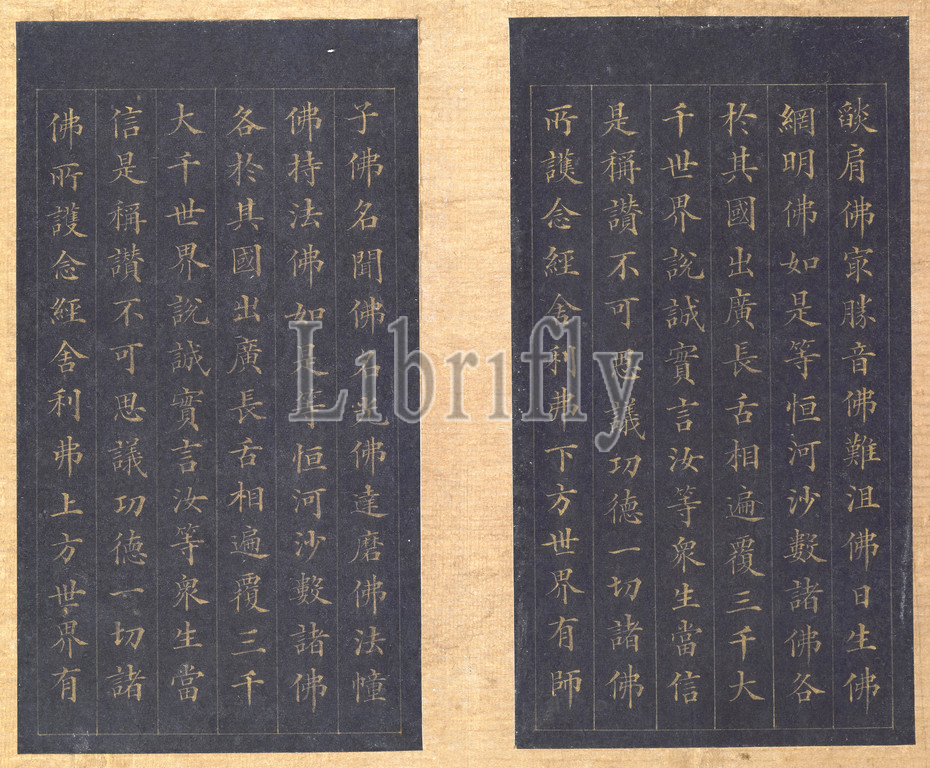 燄肩佛㝡勝音佛難沮佛日生佛
網明佛如是等恒河沙數諸佛各
於其國出廣長舌相遍覆三千大
千世界說誠實言汝等衆生當信
是稱讃不可思議功德一切諸佛
所護念經舍利弗下方世界有師
子佛名聞佛名光佛達磨佛法幢
佛持法佛如是等恒河沙數諸佛
各於其國出廣長舌相遍覆三千
大千世界說誠實言汝等衆生當
信是稱讃不可思議功德一切諸
佛所護念經舍利弗上方世界有
Librifly